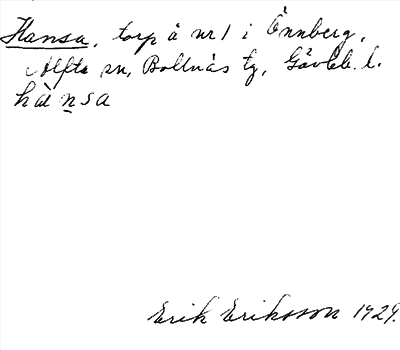 Hansa, torp å nr 1 i Önnberg,
Alfta sn, Bollnäs tg, Gävleb. l.
hànsa
Erik Eriksson 1929.